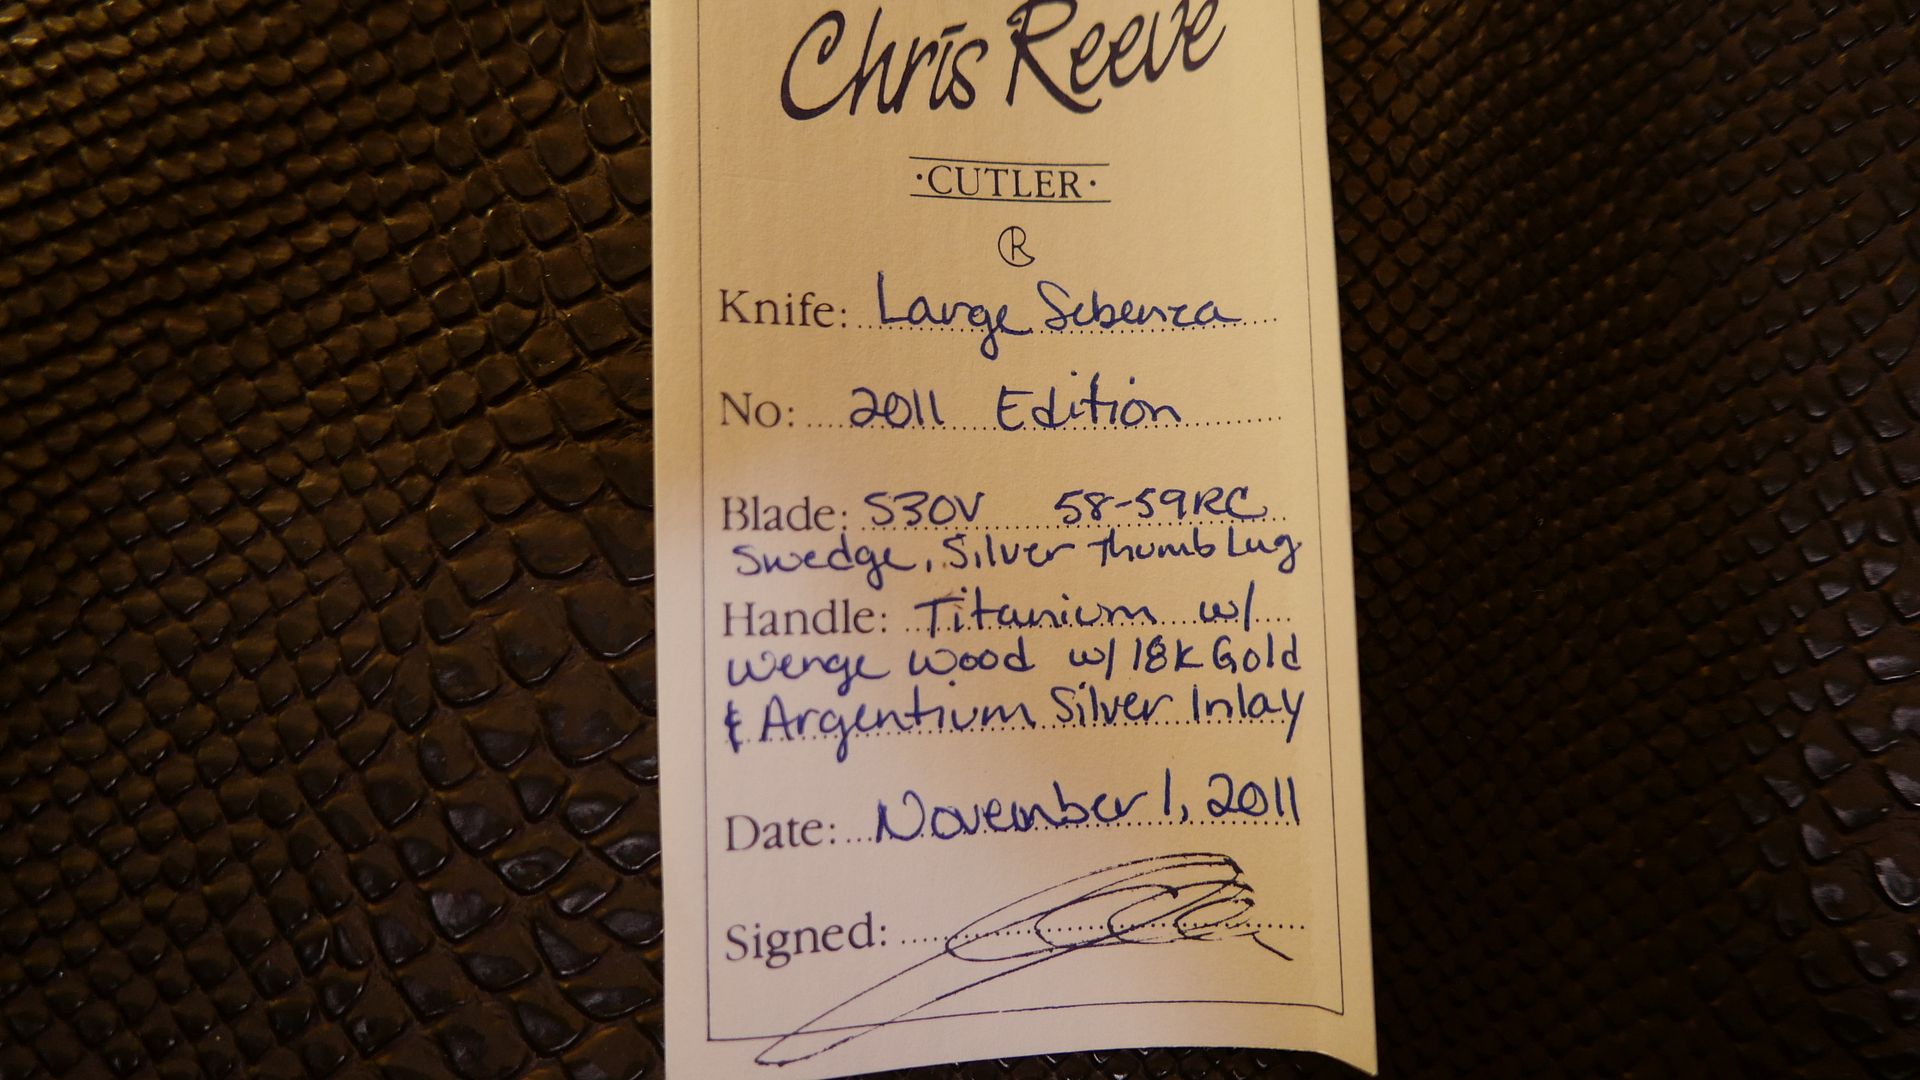 Chris Reeve
·CUTLER·
Knife: Large Sebenza
No: 2011 Edition
Blade: S30V 58-59RC
Swedge, Silver Thumb Lug
Handle: Titanium w/
Wenge Wood w/ 18k Gold
& Argentium Silver Inlay
Date: November 1, 2011
Signed: